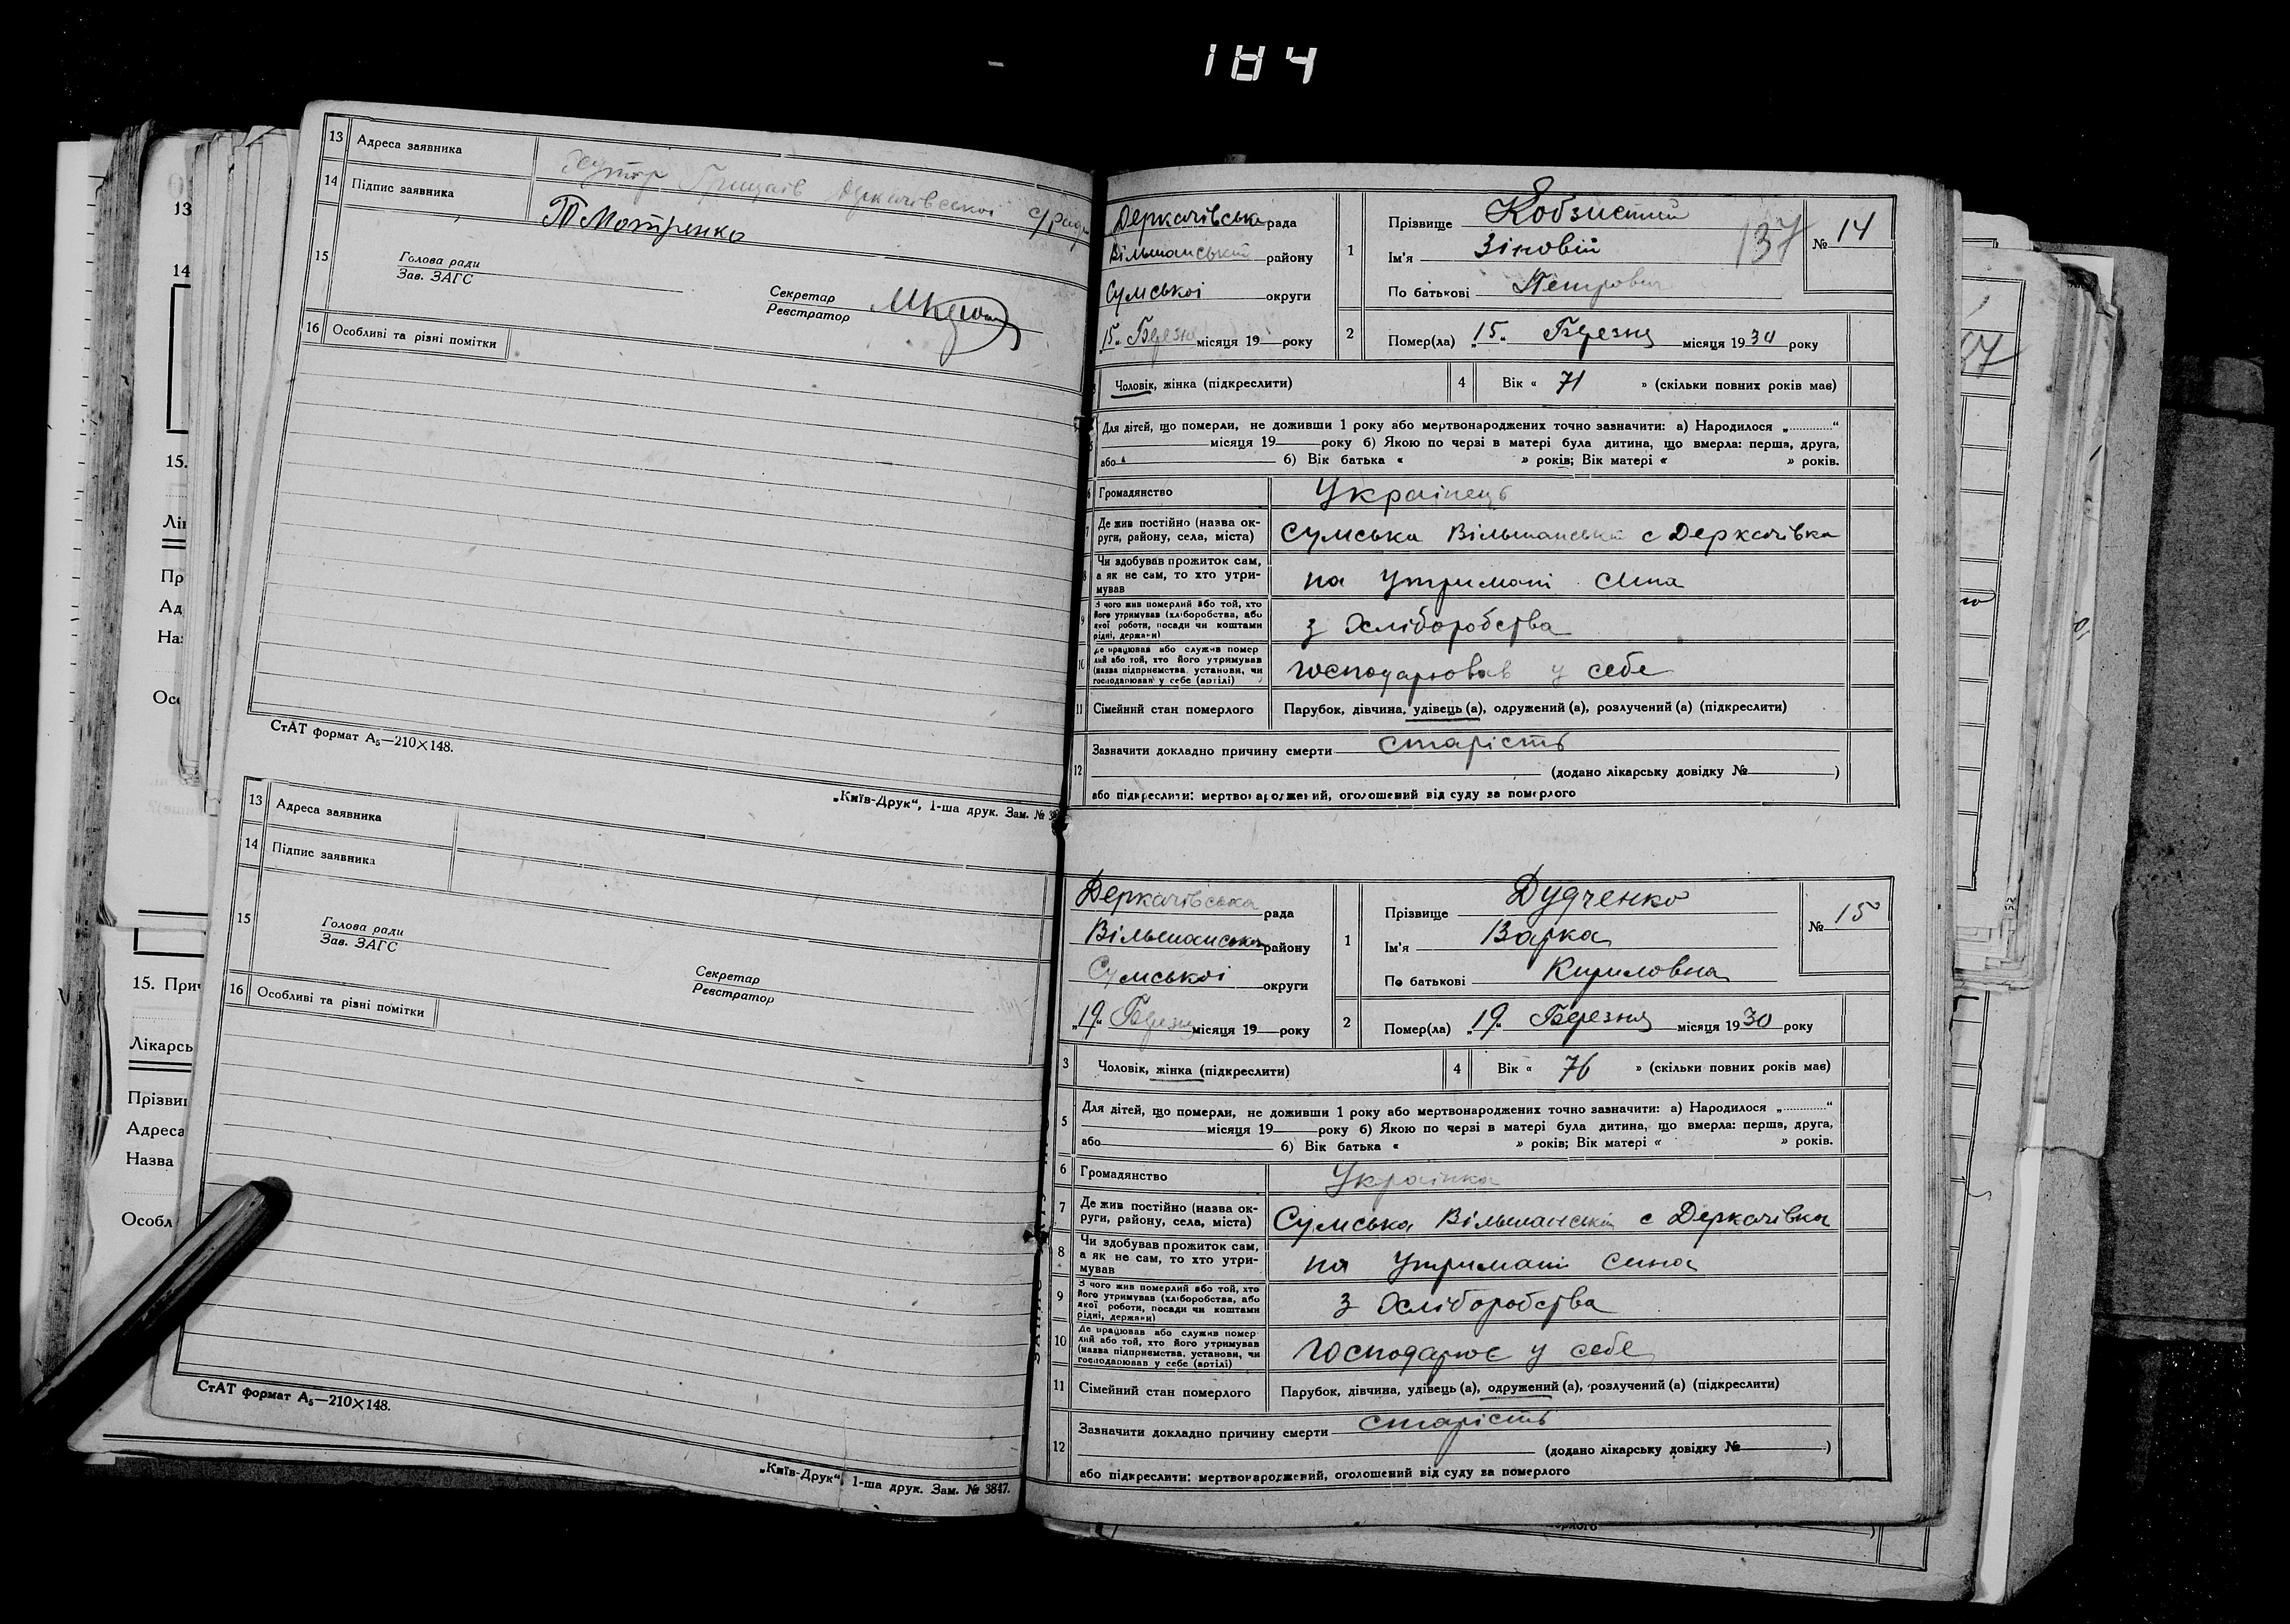 184
13 Адреса заявника хутор Грицаїв Деркачівської с/ради
14 Підпис заявника ТМотренко
15 Голова ради
Зав. ЗАГС
Секретар
Реєстратор
16 Особливі та різні помітки
СтАТ формат А5—210×148.
„Київ-Друк“, 1-ша друк. Зам. №
13 Адреса заявника
14 Підпис заявника
15 Голова ради
Зав. ЗАГС
Секретар
Реєстратор
16 Особливі та різні помітки
СтАТ формат А5—210×148.
„Київ-Друк“, 1-ша друк. Зам. № 3847.
Деркачівська рада
Вільшанський району
Сумської округи
„15“ Березня місяця 19 року
1 Прізвище Кобзистий
Ім'я Зіновій
По батькові Петрович
137
№ 14
2 Помер(ла) „15“ Березня місяця 1930 року
Чоловік, жінка (підкреслити)
4 Вік « 71 » (скільки повних років має)
Для дітей, що померли, не доживши 1 року або мертвонароджених точно зазначити: а) Народилося „ “
місяця 19 року б) Якою по черзі в матері була дитина, що вмерла: перша, друга,
або б) Вік батька « » років; Вік матері « » років.
6 Громадянство Українець
7 Де жив постійно (назва ок-
руги, району, села, міста) Сумська Вільшанський с Деркачівка
8 Чи здобував прожиток сам,
а як не сам, то хто утри-
мував на утримані сина
9 З чого жив померлий або той, хто
його утримував (хліборобства, або
якої роботи, посади чи коштами
рідні, держави) з хліборобства
10 Де працював або служив помер
лий або той, хто його утримував
(назва підприємства, установи, чи
господарював у себе (артілі) господарював у себе
11 Сімейний стан померлого Парубок, дівчина, удівець (а), одружений (а), розлучений (а) (підкреслити)
12 Зазначити докладно причину смерти старість
(додано лікарську довідку № )
або підкреслити: мертвонароджений, оголошений від суду за померлого
Деркачівська рада
Вільшанська району
Сумської округи
„19“ Березня місяця 19 року
1 Прізвище Дудченко
Ім'я Варка
По батькові Кириловна
№ 15
2 Помер(ла) „19“ Березня місяця 1930 року
3 Чоловік, жінка (підкреслити)
4 Вік « 76 » (скільки повних років має)
5 Для дітей, що померли, не доживши 1 року або мертвонароджених точно зазначити: а) Народилося „ “
місяця 19 року б) Якою по черзі в матері була дитина, що вмерла: перша, друга,
або б) Вік батька « » років; Вік матері « » років.
6 Громадянство Українка
7 Де жив постійно (назва ок-
руги, району, села, міста) Сумська Вільшанський с Деркачівка
8 Чи здобував прожиток сам,
а як не сам, то хто утри-
мував на утримані сина
9 З чого жив померлий або той, хто
його утримував (хліборобства, або
якої роботи, посади чи коштами
рідні, держави) з хліборобства
10 Де працював або служив помер
лий або той, хто його утримував
(назва підприємства, установи, чи
господарював у себе (артілі) господарює у себе
11 Сімейний стан померлого Парубок, дівчина, удівець (а), одружений (а), розлучений (а) (підкреслити)
12 Зазначити докладно причину смерти старість
(додано лікарську довідку № )
або підкреслити: мертвонароджений, оголошений від суду за померлого